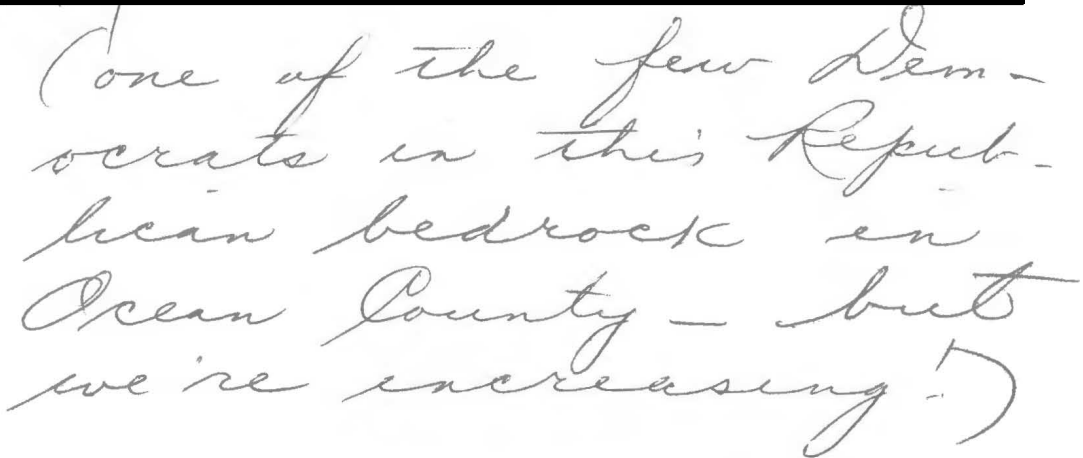 (one of the few Dem-
ocrats in this Repub-
lican bedrock in
Ocean County - but
we're increasing!)